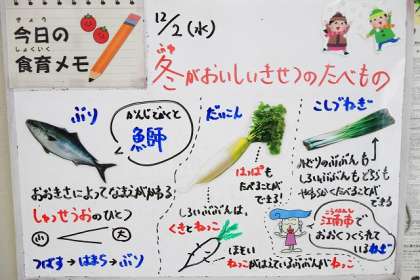 きょう
今日の
しょくいく
食育メモ
12/2(水)
ふゆ
冬がおいしいきせつのたべもの
ぶり
かんじでかくと
鰤
おおきさによってなまえがかわる
しゅっせうおのひとつ
小
大
つばす→はまち→ぶり
だいこん
はっぱも
たべることが
できる!
しろいぶぶんは、
くきとねっこ
ほそい
ねっこがはえているぶぶんがねっこ
こしづねぎ
みどりのぶぶんも
しろいぶぶんもどちらも
やわらかくたべることが
できる
こうなんし
江南市で
おおくつくられて
いるねぎ